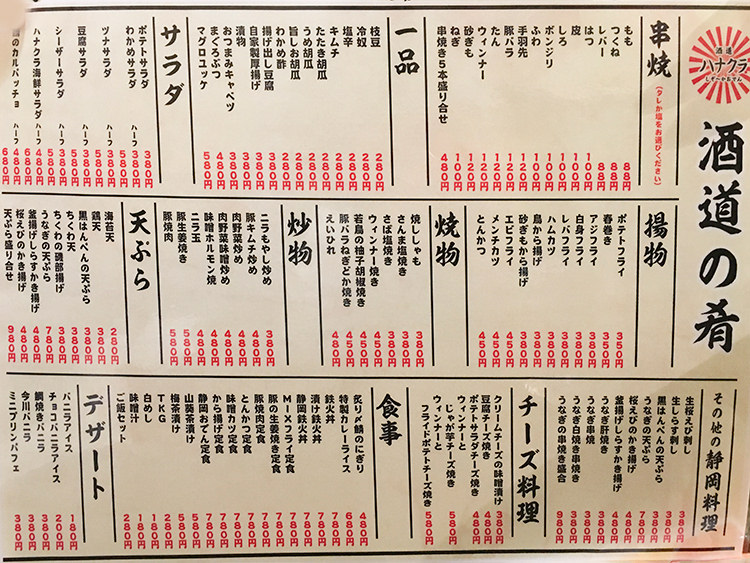 酒道 ハナクラ
しぞ〜かるまん
酒道の肴
串焼(タレか塩をお選びください)
もも 88円
つくね 88円
レバー 88円
はつ 100円
皮 100円
しろ 100円
ボンジリ 100円
ふわ 100円
手羽先 120円
豚バラ 120円
たん 120円
ウィンナー 120円
砂ぎも 120円
ねぎ 100円
串焼き5本盛り合せ 480円
一品
枝豆 280円
冷奴 280円
塩辛 280円
キムチ 280円
たたき胡瓜 280円
うめ胡瓜 280円
旨しお胡瓜 280円
わかめ酢 280円
揚げ出し豆腐 380円
自家製厚揚げ 380円
漬物 380円
おつまみキャベツ 380円
まぐろぶつ 480円
マグロユッケ 580円
サラダ
ポテトサラダ 380円
わかめサラダ 580円
ハーフ 380円
ツナサラダ 580円
ハーフ 380円
豆腐サラダ 580円
ハーフ 380円
シーザーサラダ 580円
ハーフ 380円
ハナクラ海鮮サラダ 680円
ハーフ 480円
のカルパッチョ 680円
ハーフ 480円
揚物
ポテトフライ 350円
春巻き 350円
アジフライ 380円
白身フライ 380円
レバフライ 380円
ハムカツ 380円
鳥から揚げ 380円
砂ぎもから揚げ 380円
エビフライ 450円
メンチカツ 450円
とんかつ 450円
焼物
焼ししゃも 380円
さんま塩焼き 380円
さば塩焼き 380円
ウィンナー焼き 380円
若鳥の柚子胡椒焼き 450円
豚バラねぎどか焼き 450円
えいひれ 480円
炒物
ニラもやし炒め 380円
豚キムチ炒め 480円
肉野菜炒め 480円
肉野菜味噌炒め 480円
味噌ホルモン焼 480円
ニラ玉 480円
豚生姜焼き 580円
豚焼肉 580円
天ぷら
海苔天 280円
鶏天 380円
黒はんぺんの天ぷら 380円
ちくわ天 380円
ちくわの磯部揚げ 380円
うなぎの天ぷら 780円
釜揚げしらすかき揚げ 480円
桜えびのかき揚げ 480円
天ぷら盛り合せ 980円
その他の静岡料理
生桜えび刺し 380円
生しらす刺し 380円
黒はんぺんの天ぷら 380円
うなぎの天ぷら 780円
桜えびのかき揚げ 480円
釜揚げしらすかき揚げ 480円
うなぎ肝焼き
うなぎ串焼
うなぎ白焼き串焼き
うなぎの串焼き盛合 580円
チーズ料理
クリームチーズの味噌漬け 380円
豆腐チーズ焼き 480円
ポテトサラダチーズ焼き 480円
ウィンナーと
じゃが芋チーズ焼き 580円
ウィンナーと
フライドポテトチーズ焼き 580円
食事
炙り〆鯖のにぎり 480円
特製カレーライス 680円
鉄火丼
漬け鉄火丼
静岡鉄火丼
MIXフライ定食
豚の生姜焼き定食
豚焼肉定食
とんかつ定食
から揚げ定食
味噌カツ定食
静岡おでん定食
山葵茶漬け 580円
梅茶漬け 580円
TKG 280円
白めし 180円
味噌汁 180円
ご飯セット 280円
デザート
バニラアイス 180円
チョコバニラアイス 200円
鯛焼きバニラ 380円
今川バニラ 380円
ミニプリンパフェ 380円